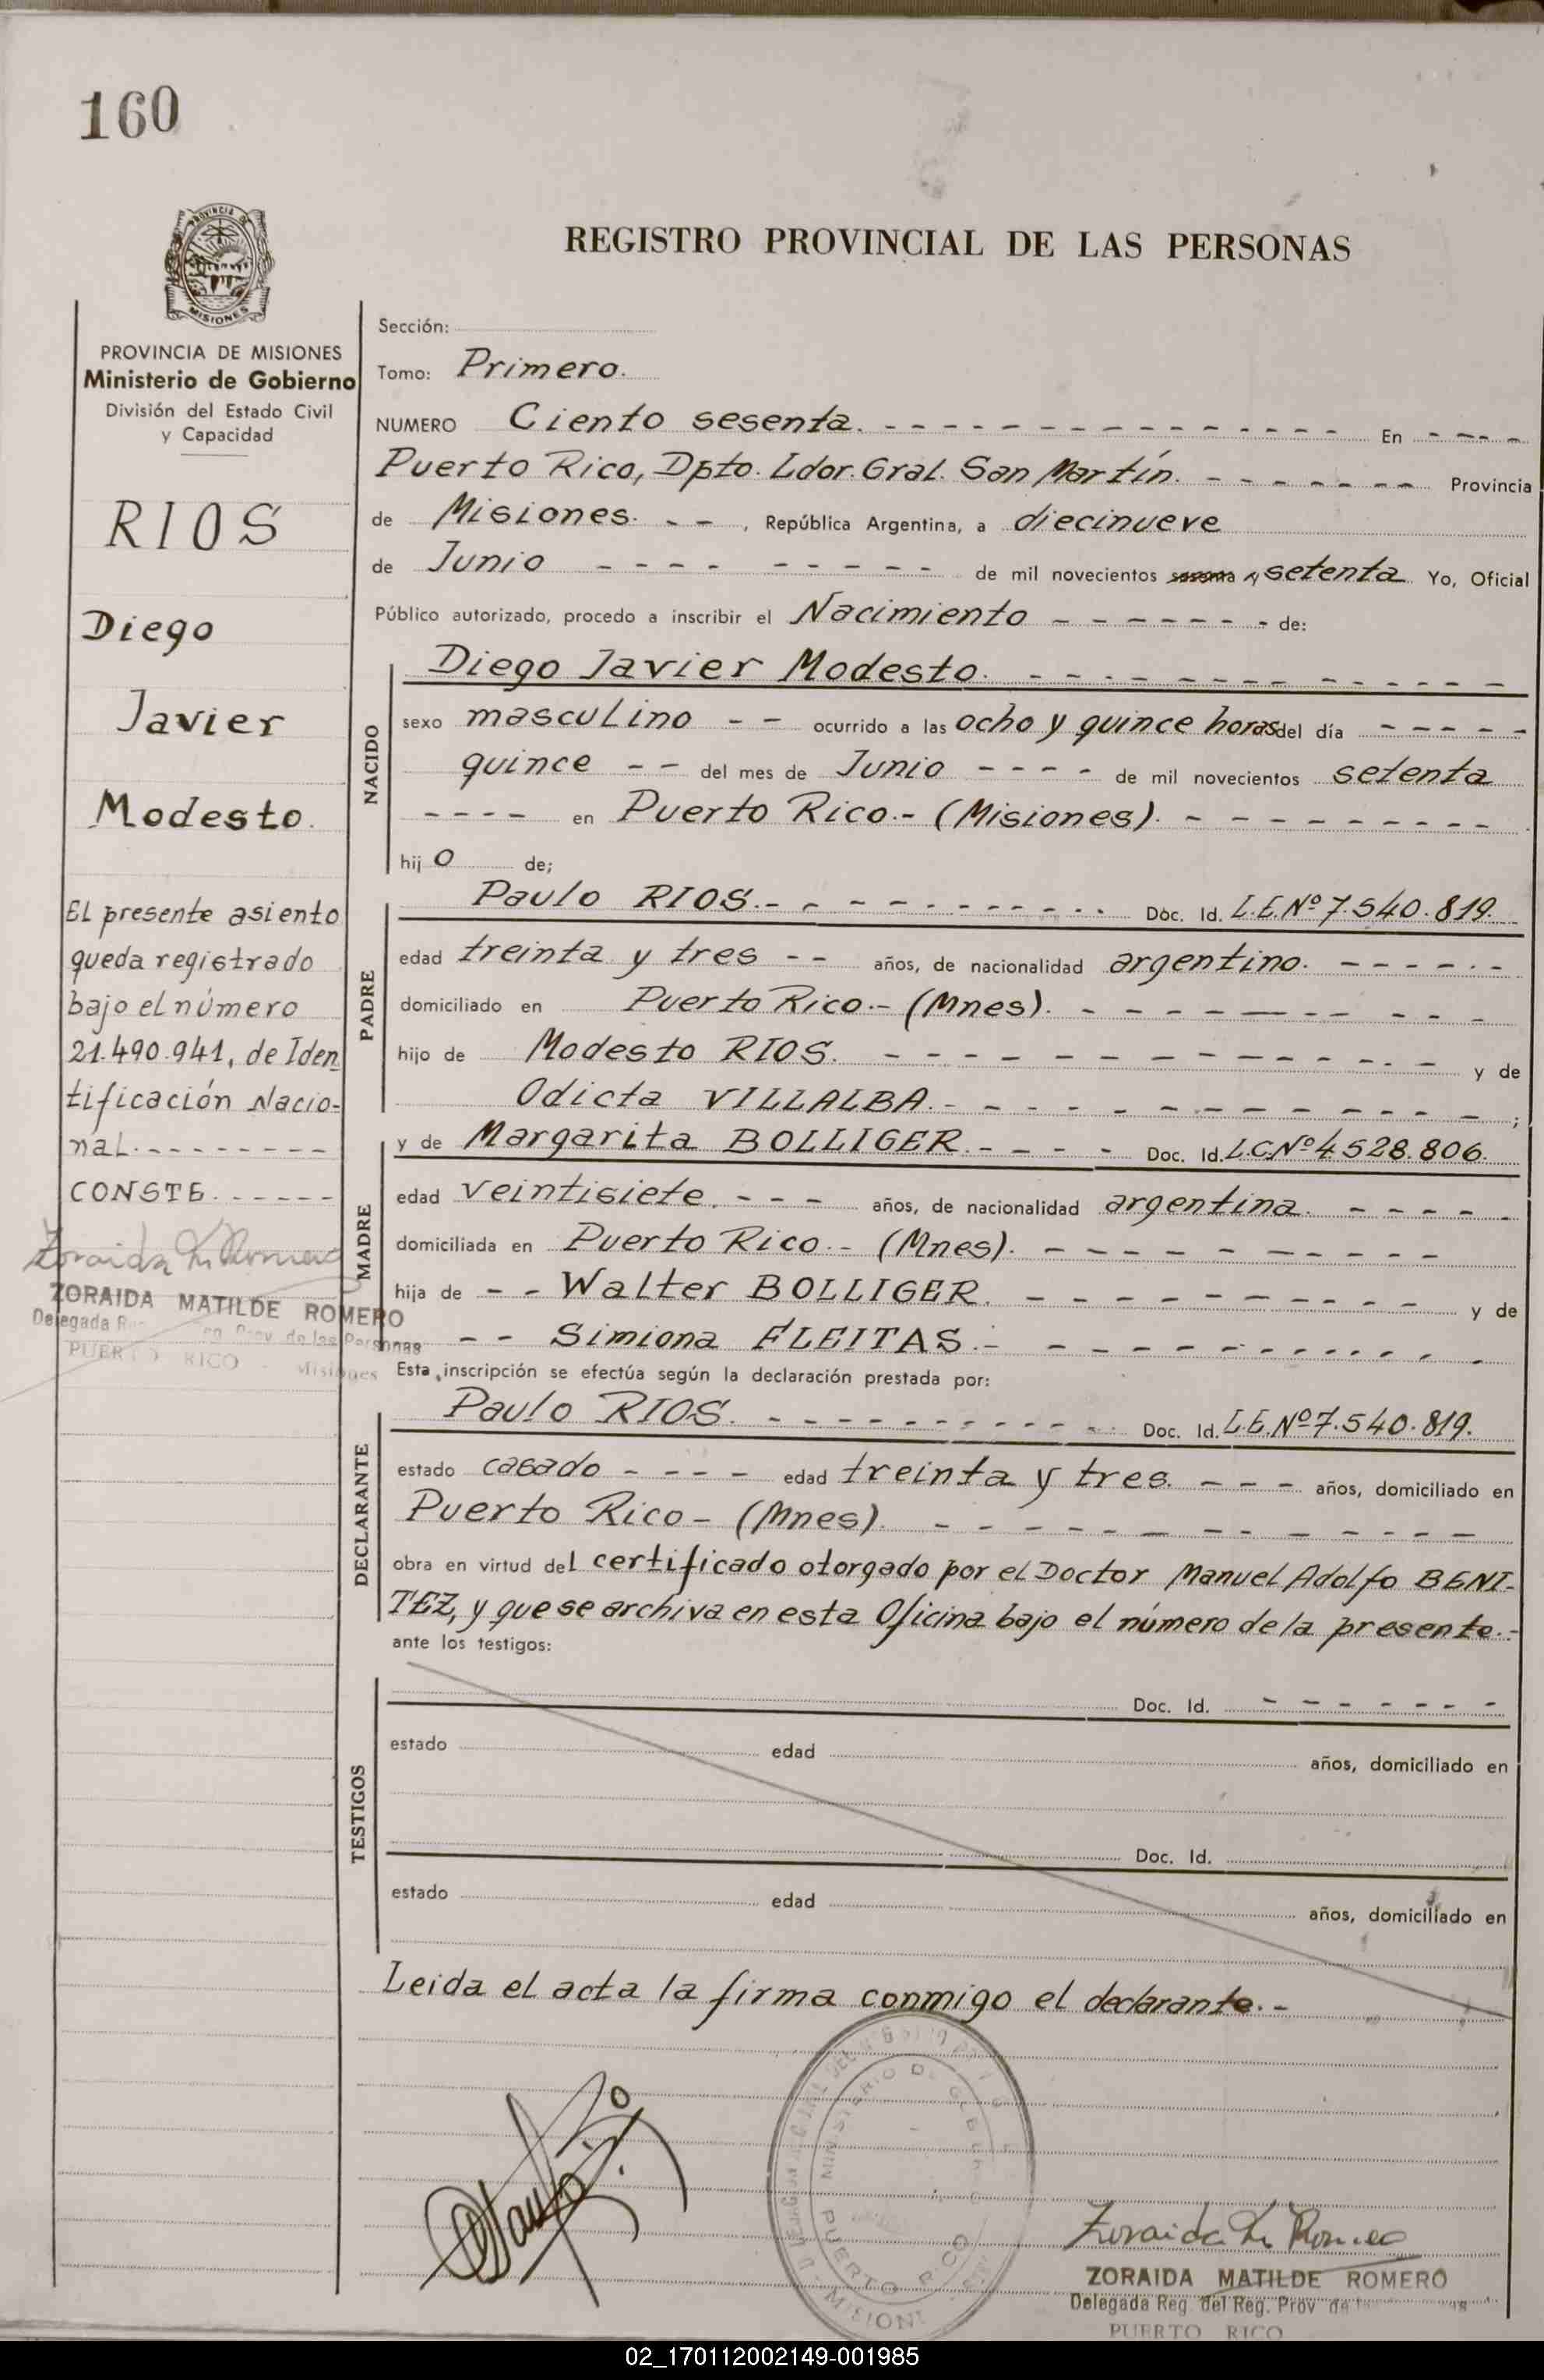 160
PROVINCIA DE
MISIONES
REGISTRO PROVINCIAL DE LAS PERSONAS
PROVINCIA DE MISIONES
Ministerio de Gobierno
División del Estado Civil
y Capacidad
RIOS
Diego
Javier
Modesto.
El presente asiento
queda registrado
bajo el número
21.490.941, de Iden
tificación Nacio-
nal.--------
CONSTE.-----
Zoraida M. Romero
ZORAIDA MATILDE ROMERO
Delegada Prov. de las Personas
PUERTO RICO - Misiones
Sección:
Tomo: Primero.
NUMERO Ciento sesenta. - - - - - - - - - - - - - - - - En - - - -
Puerto Rico, Dpto. Ldor. Gral. San Martín. - - - - - - - Provincia
de Misiones. - - , República Argentina, a diecinueve
de Junio - - - - - - - - - de mil novecientos sesenta y setenta Yo, Oficial
Público autorizado, procedo a inscribir el Nacimiento - - - - - - - - de:
NACIDO
Diego Javier Modesto. - - - - - - - - - - - - - -
sexo masculino - - ocurrido a las ocho y quince horas del día - - - - -
quince - - del mes de Junio - - - - de mil novecientos setenta
- - - - en Puerto Rico.- (Misiones). - - - - - - - - -
hij o de;
PADRE
Paulo RIOS.- - - - - - - - - - - - Doc. Id. L.E.Nº 7.540.819.
edad treinta y tres - - años, de nacionalidad argentino. - - - - - -
domiciliado en Puerto Rico.- (Mnes). - - - - - - - - - - -
hijo de Modesto RIOS. - - - - - - - - - - - - - - y de
Odicta VILLALBA.- - - - - - - - - - - - - - - ;
MADRE
y de Margarita BOLLIGER.- - - - - Doc. Id. L.C.Nº 4.528.806.
edad veintisiete. - - - años, de nacionalidad argentina. - - - - -
domiciliada en Puerto Rico.- (Mnes). - - - - - - - - - - -
hija de - - Walter BOLLIGER. - - - - - - - - - - y de
- - Simiona FLEITAS.- - - - - - - - - - - - - -
Esta inscripción se efectúa según la declaración prestada por:
DECLARANTE
Paulo RIOS. - - - - - - - - - - - - Doc. Id. L.E.Nº 7.540.819.
estado casado - - - - edad treinta y tres. - - - años, domiciliado en
Puerto Rico - (Mnes). - - - - - - - - - - - - -
obra en virtud del certificado otorgado por el Doctor Manuel Adolfo BENI-
TEZ, y que se archiva en esta Oficina bajo el número de la presente.-
ante los testigos:
TESTIGOS
Doc. Id. - - - - - - -
estado edad años, domiciliado en
Doc. Id.
estado edad años, domiciliado en
Leida el acta la firma conmigo el declarante.-
MINISTERIO DE GOBIERNO
PUERTO RICO
MISIONES
Zoraida M. Romero
ZORAIDA MATILDE ROMERO
Delegada Reg. del Reg. Prov de
PUERTO RICO
02_170112002149-001985